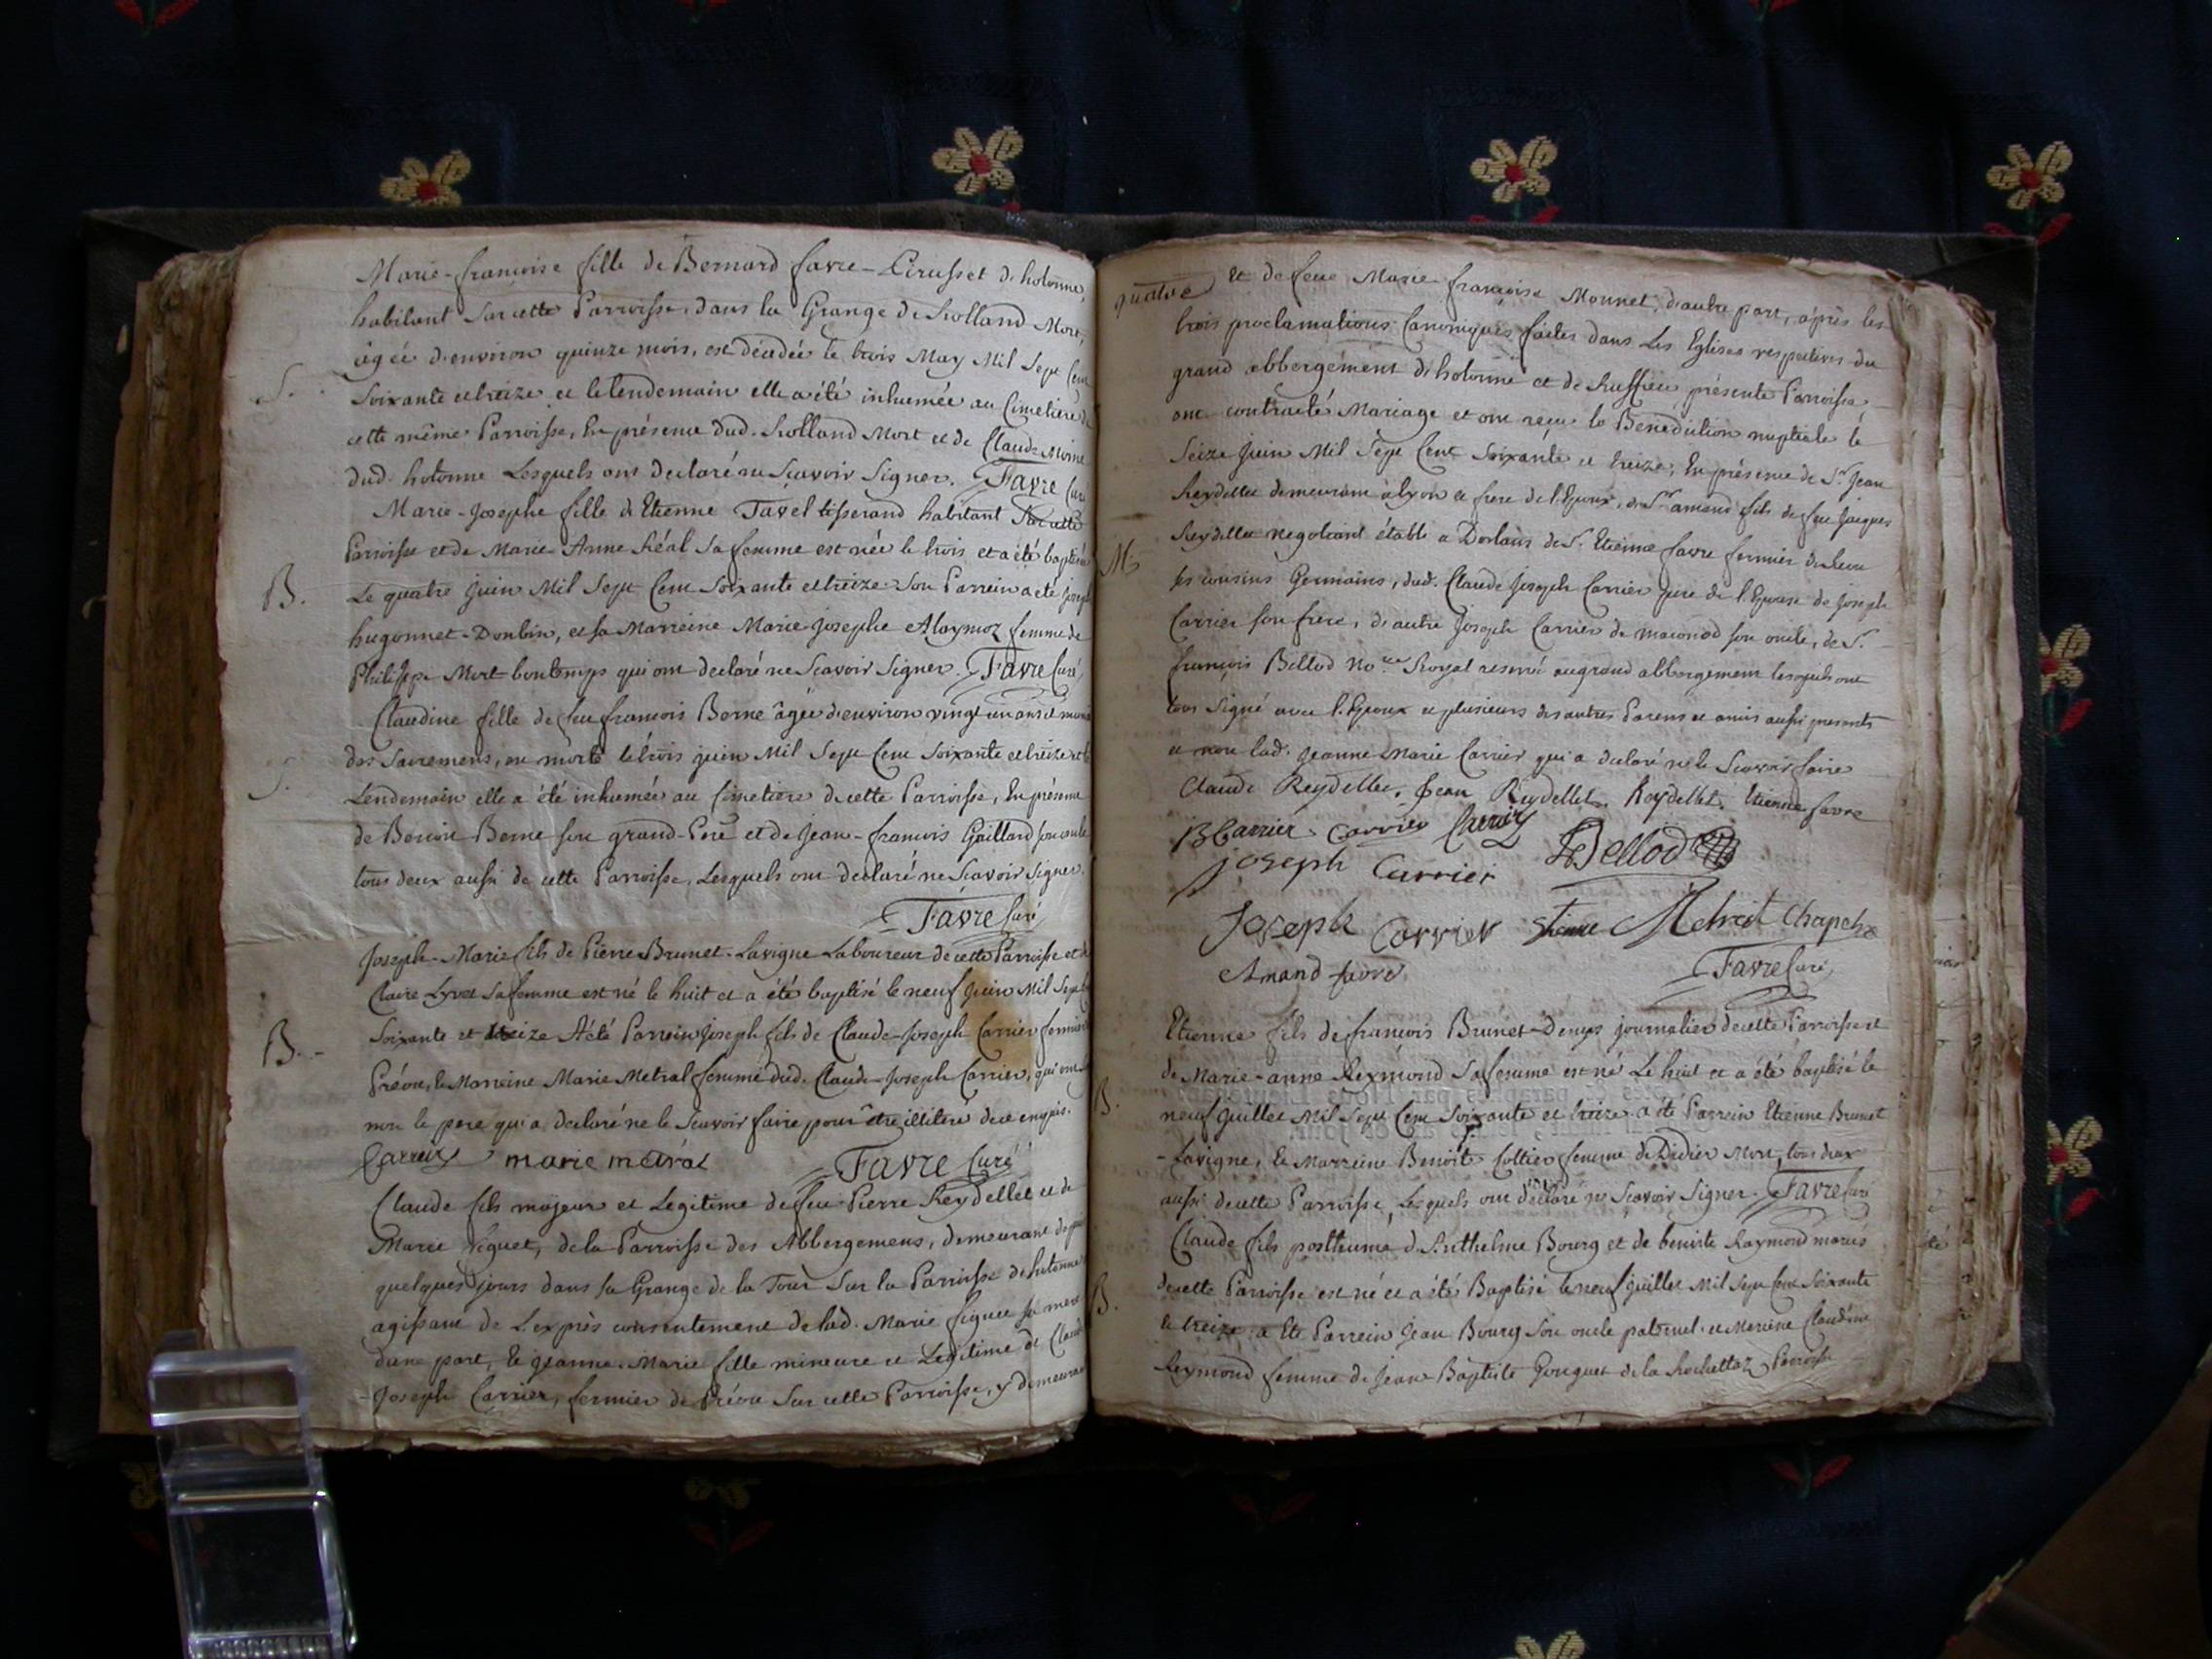 Marie-francoise fille de Bernard favre- de hotonne,
habitant sur cette Parroisse, dans la Grange de Rolland Mort,
âgée d'environ quinze mois, est décédée le trois May Mil Sept Cent
S.
Soixante et treize et le lendemain elle a été inhumée au Cimetiere de
cette même Parroisse, En présence dud. Rolland Mort et de Claude
dud. hotonne Lesquels ont declaré ne Scavoir Signer. Favre Curé
Marie-Josephe fille de Etienne Tavel tisserand habitant Sur cette
Parroisse et de Marie-Anne Réal Sa femme est née le trois et a été baptisée
B.
Le quatre Juin Mil Sept Cent Soixante et treize. Son Parrein a été Joseph
hugonnet-Donbin, et sa Marreine Marie-Josephe Alaymoz femme de
Philippe Mort-bontemps qui ont declaré ne Scavoir Signer. Favre Curé
Claudine fille de feu francois Borne âgée d'environ vingt un ans et munie
des Sacremens, est morte le trois juin Mil Sept Cent Soixante et treize et le
S.
Lendemain elle a été inhumée au Cimetiere de cette Parroisse, En présence
de Benoit Borne son grand-Pere et de Jean-francois Gaillard son oncle
tous deux aussi de cette Parroisse, Lesquels ont declaré ne Scavoir Signer.
Favre Curé
Joseph-Marie fils de Pierre Brunet-Lavigne Laboureur de cette Parroisse et de
Claire Lyvet Sa femme est né le huit et a été baptisé le neuf Juin Mil Sept Cent
B.-
Soixante et treize. A été Parrein Joseph fils de Claude-Joseph Carrier fermier
Prévou, la Marreine Marie Metral femme dud. Claude-Joseph Carrier, qui ont
non le pere qui a declaré ne le Scavoir faire pour être illitéré de ce enquis.
Carrier marie metral Favre Curé
Claude fils majeur et Legitime de feu Pierre Reydellet et de
Marie figuet, de la Parroisse des Abbergemens, demeurant depuis
quelques jours dans sa Grange de la Tour Sur la Parroisse de hotonne
agissant de L'exprès consentement de lad. Marie figuet sa mere
d'une part, Et Jeanne-Marie fille mineure et Legitime de Claude
-Joseph Carrier, fermier de Prévou Sur cette Parroisse, y demeurant
quatre
Et de feue Marie francoise Monnet, d'autre part, après les
trois proclamations Canoniques faites dans Les Eglises respectives du
grand abbergement de hotonne et de Ruffieu, présente Parroisse,
ont contracté Mariage et ont reçu la Benediction nuptiale le
Seize Juin Mil Sept Cent Soixante et treize, En présence de Sr. Jean
Reydellet demeurant à Lyon et frere de l'Epoux, de Sr. amand fils de feu Jacques
Reydellet negotiant établi a de S. Etienne favre fermier
M.
ses cousins Germains, dud. Claude Joseph Carrier pere de l'Epouse de Joseph
Carrier son frere, d'autre Joseph Carrier de maconod son oncle, de S.
françois Bellod Nore. Royal au grand abbergement lesquels ont
tous signé avec l'Epoux et plusieurs des autres Parens et amis aussi presents
et non lad. Jeanne Marie Carrier qui a declaré ne le Scavoir faire
Claude Reydellet. Jean Reydellet. Reydellet. Etienne favre
B Carrier Carrier Carrier
joseph Carrier Bellod
Joseph Carrier Etienne Metrait Chapelu
Amand favre Favre Curé
Etienne fils de francois Brunet-Denys journalier de cette Parroisse et
de Marie-anne Reymond Sa femme est né Le huit et a été baptisé le
B.
neuf Juillet Mil Sept Cent Soixante et treize. a été Parrein Etienne Brunet
-Lavigne, la Marreine Benoite Cottier femme de Didier Mort, tous deux
aussi de cette Parroisse, Lesquels ont declaré ne Scavoir Signer. Favre Curé
Claude fils posthume d'Anthelme Bourg et de benoite Raymond mariés
B.
de cette Parroisse est né et a été Baptisé le neuf Juillet Mil Sept Cent Soixante
et treize. a Eté Parrein Jean Bourg Son oncle paternel. et Marreine Claudine
Reymond femme de Jean Baptiste Gonguet de la Rochettaz Parroisse